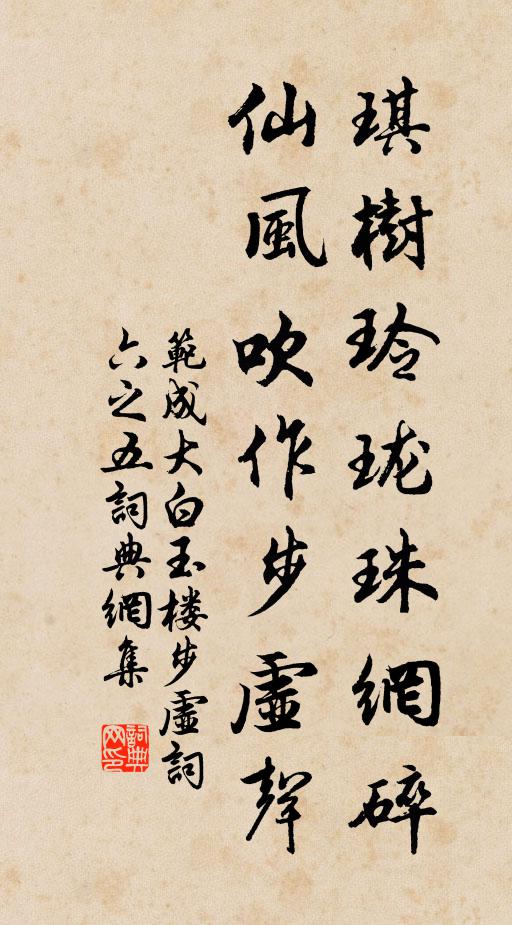 琪樹玲瓏珠網碎
仙風吹作步虛聲
範成大白玉楼步虛詞
六之五詞典網集
詞典网印